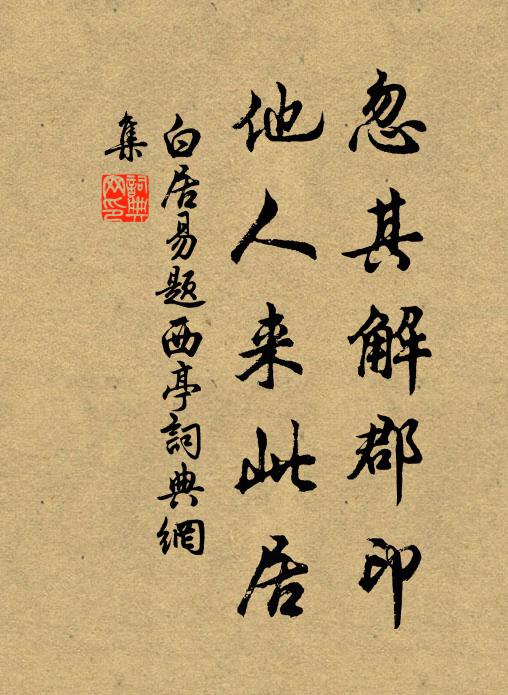 忽其解郡印
他人来此居
白居易题西亭詞典網
集
詞典
网印